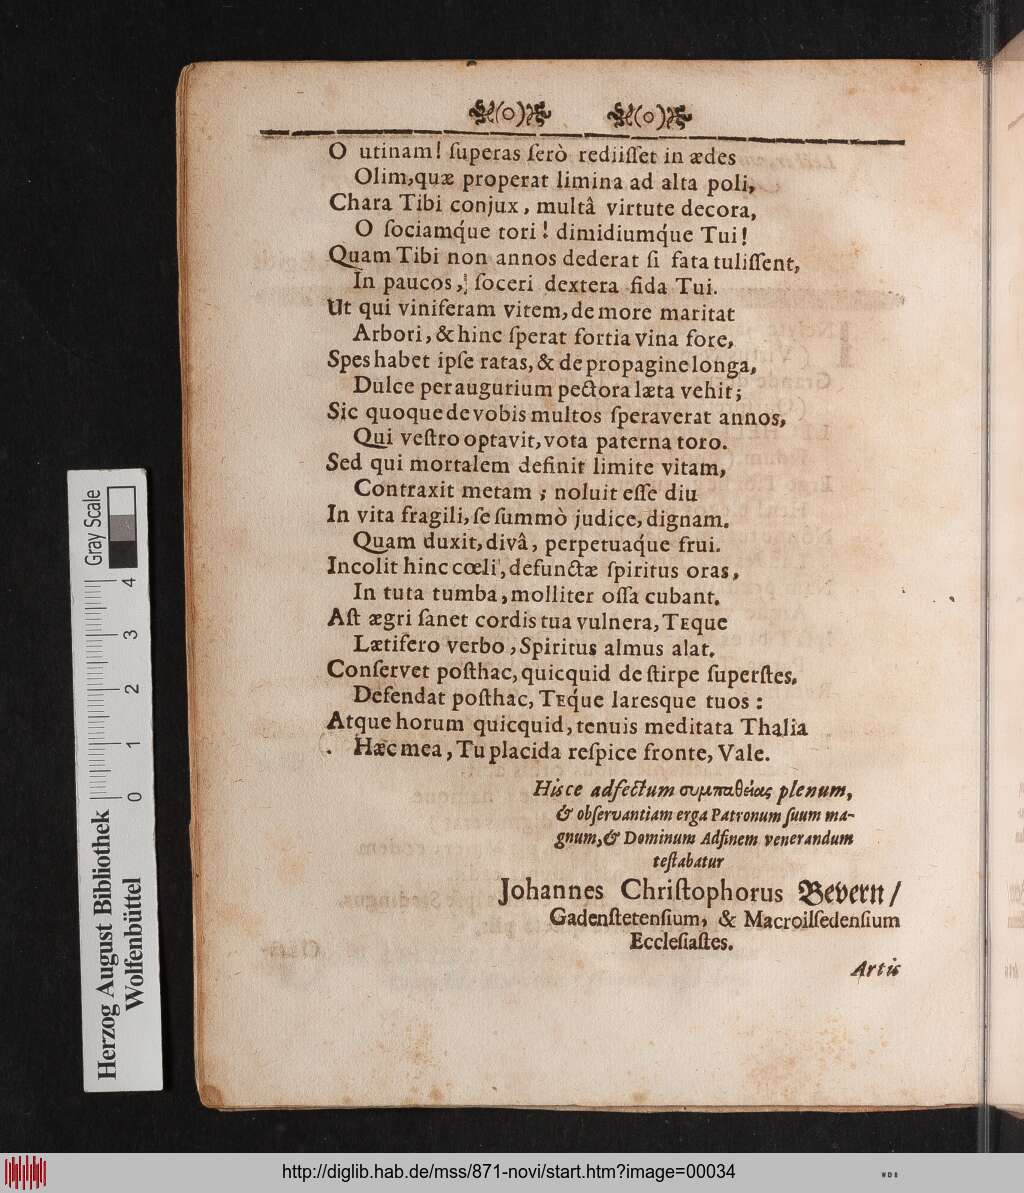 (o) (o)
O utinam! ſuperas ſerò rediiſſet in ædes
Olim, quæ properat limina ad alta poli,
Chara Tibi conjux, multâ virtute decora,
O ſociamq́ue tori! dimidiumq́ue Tui!
Quam Tibi non annos dederat ſi fata tuliſſent,
In paucos, ſoceri dextera fida Tui.
Ut qui viniferam vitem, de more maritat
Arbori, & hinc ſperat fortia vina fore,
Spes habet ipſe ratas, & de propagine longa,
Dulce per augurium pectora læta vehit;
Sic quoque de vobis multos ſperaverat annos,
Qui veſtro optavit, vota paterna toro.
Sed qui mortalem definit limite vitam,
Contraxit metam; noluit eſſe diu
In vita fragili, ſe ſummò judice, dignam.
Quam duxit, divâ, perpetuaq́ue frui.
Incolit hinc cœli, defunctæ ſpiritus oras,
In tuta tumba, molliter oſſa cubant.
Aſt ægri ſanet cordis tua vulnera, TEque
Lætifero verbo, Spiritus almus alat.
Conſervet poſthac, quicquid de ſtirpe ſuperſtes,
Defendat poſthac, TEq́ue laresque tuos:
Atque horum quicquid, tenuis meditata Thalia
Hæc mea, Tu placida reſpice fronte, Vale.
Hisce adfectum συμπαθείας plenum,
& obſervantiam erga Patronum ſuum ma-
gnum, & Dominum Adfinem venerandum
teſtabatur
Johannes Chriſtophorus Bevern/
Gadenſtetenſium, & Macroilſedenſium
Eccleſiaſtes.
Artis
Gray Scale
0 1 2 3 4
Herzog August Bibliothek
Wolfenbüttel
http://diglib.hab.de/mss/871-novi/start.htm?image=00034
WDB